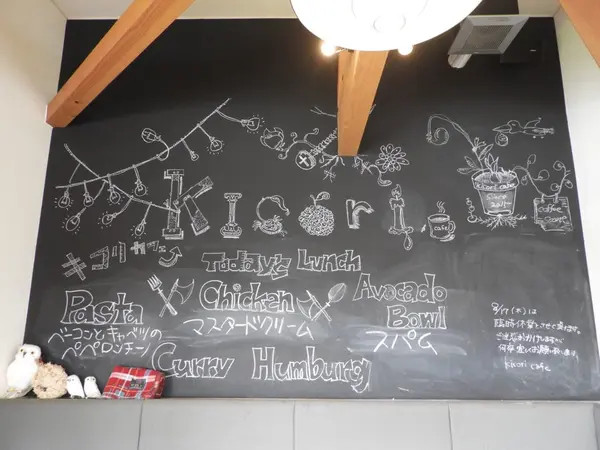 Kikori
cafe
kicori cafe
Since
coffee
キコリカフェ
Today's Lunch
Pasta
ベーコンとキャベツの
ペペロンチーノ
Chicken
マスタードクリーム
Avocado
Bowl
スパム
Curry Humburg
9/17 (木) は
臨時休業とさせて頂きます。
ご迷惑おかけしますが
何卒宜しくお願い致します。
kicori cafe